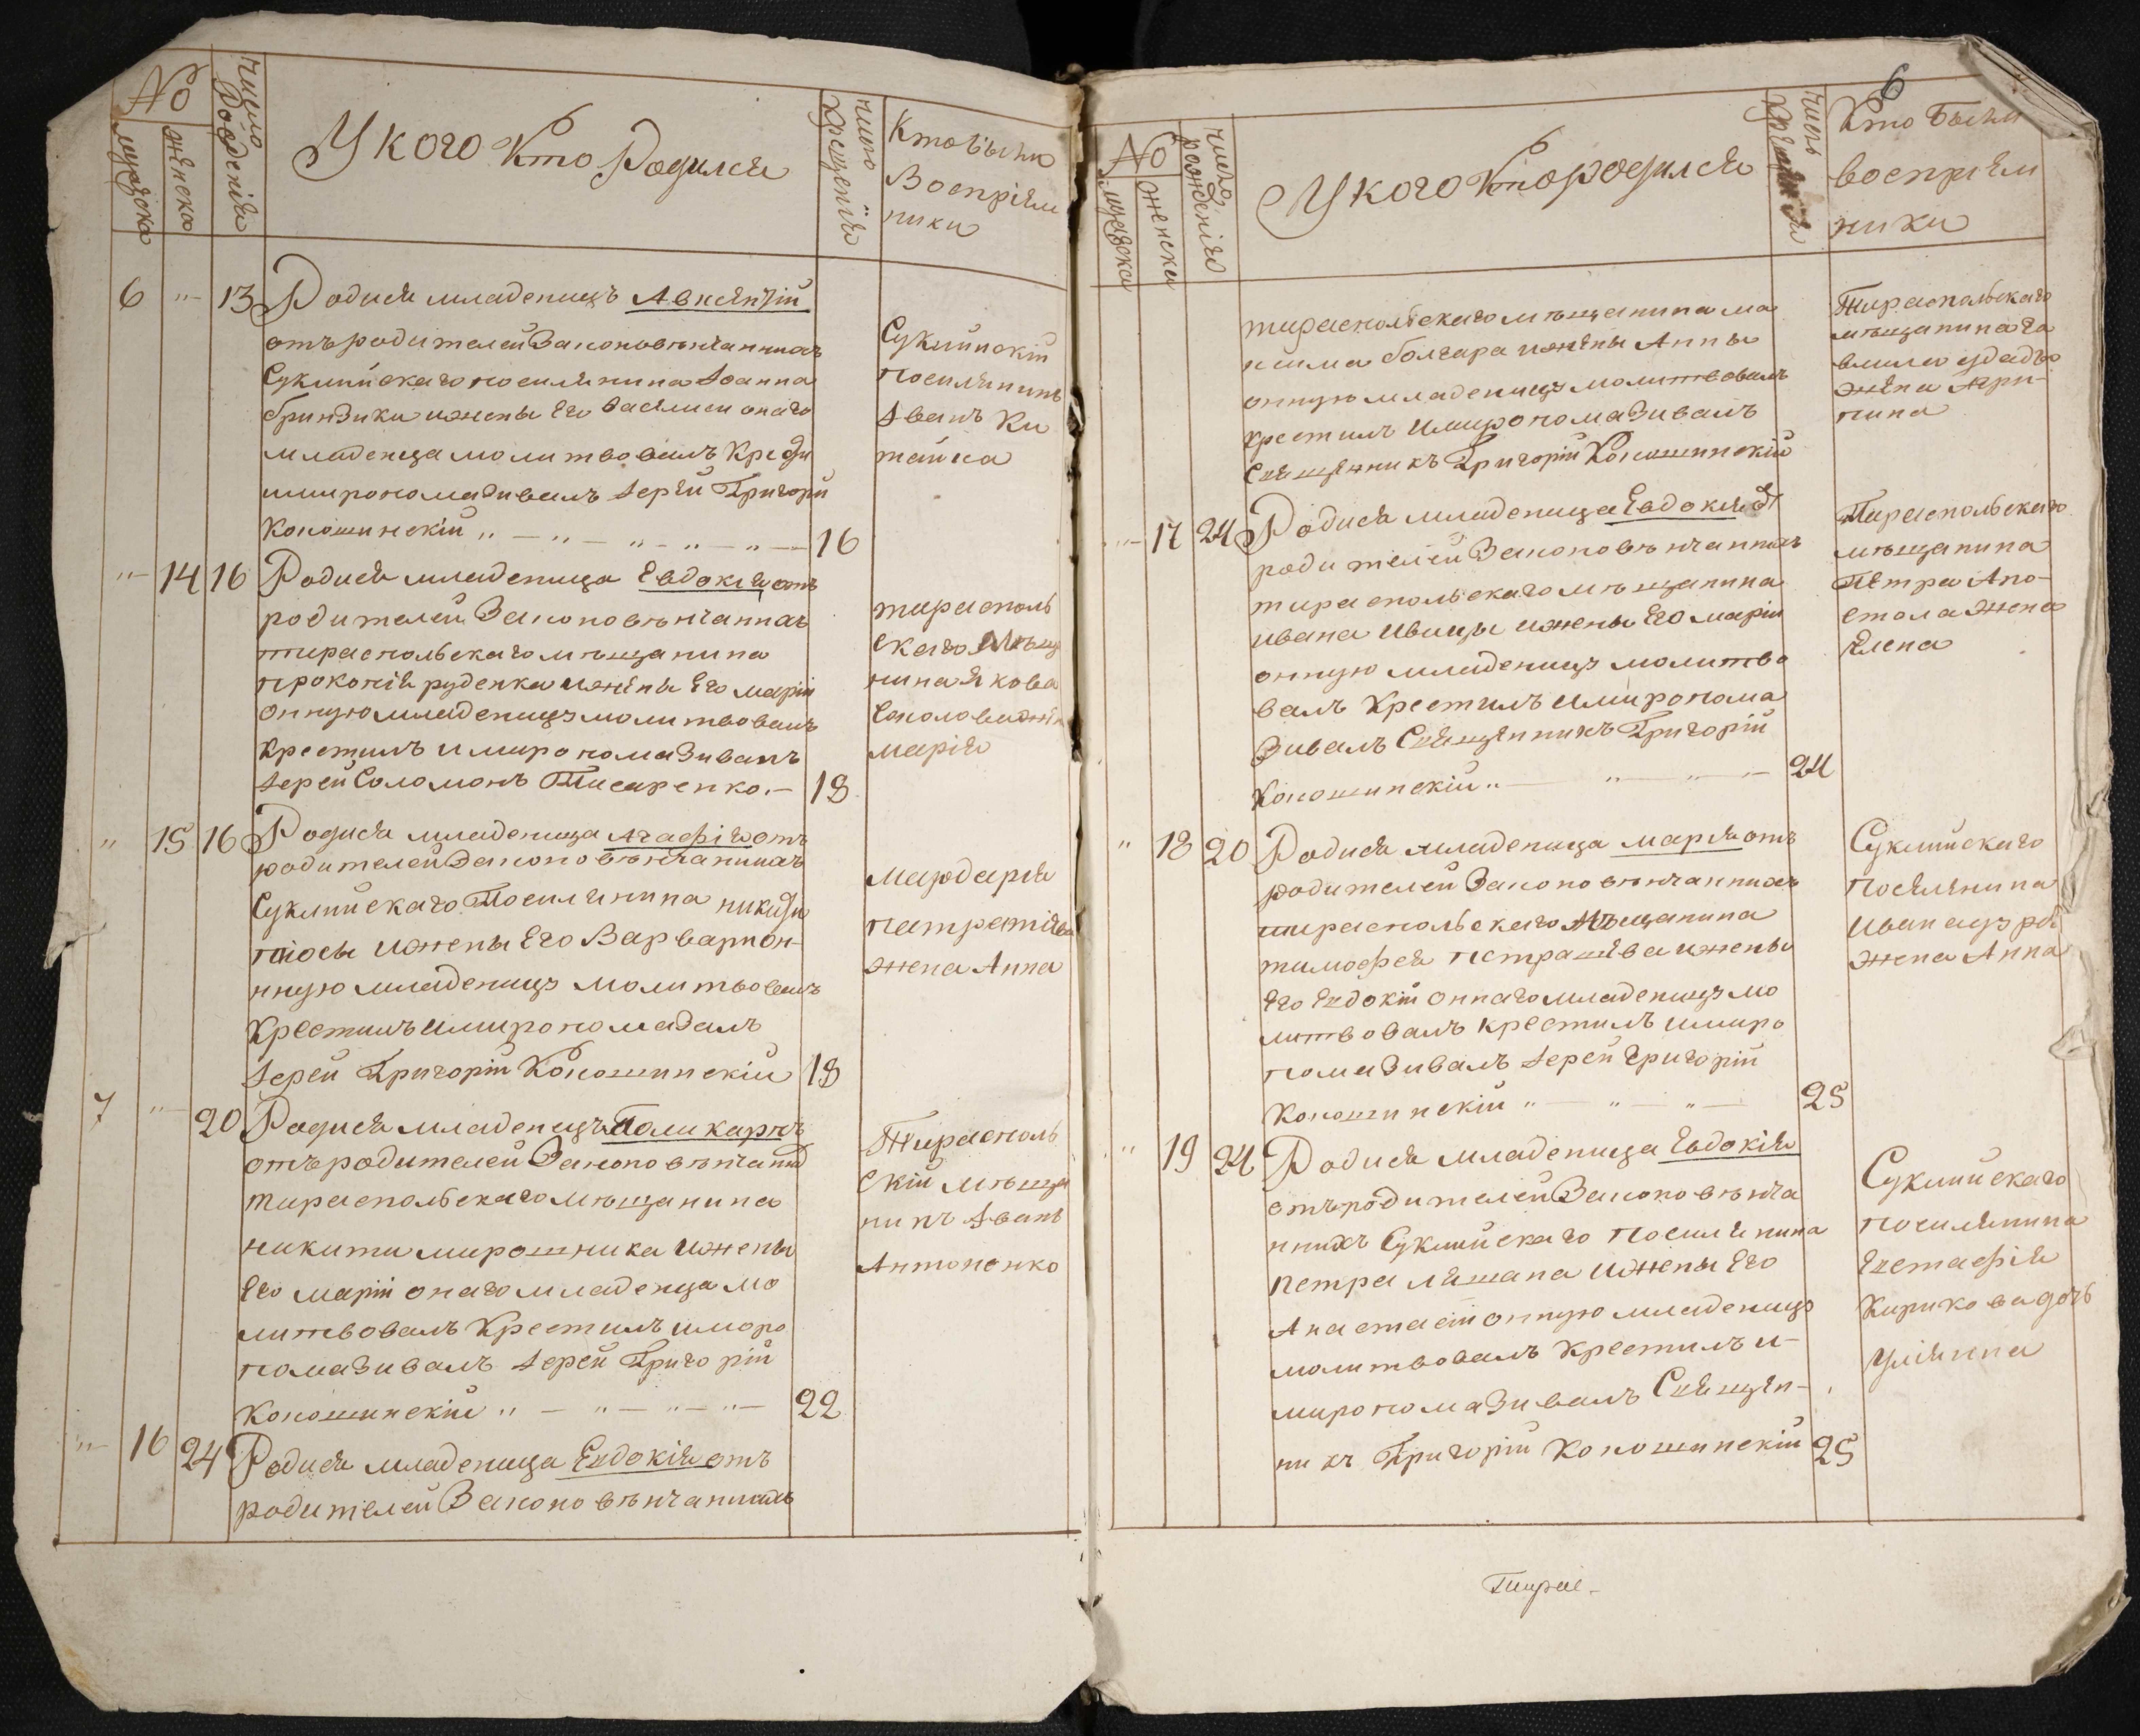 №
мужска
женска
число рожденія
У кого Кто Родился
число крещенія
Кто были
Воспріем
ники
6 " 13 Родися младенецъ Авксентій
отъ родителей Законовѣнчанныхъ
Суклийскаго поселянина Іоанна
Гриндики и жены Его Василиси онаго
младенца молитвовалъ Крести
и миропомазивалъ Іерей Григорій
Коношинскій " — " — " — " — " — 16
Суклийскій
поселянинъ
Іванъ Ки
тайка
" 14 16 Родися младеница Евдокія отъ
родителей Законовѣнчаннахъ
тираспольскаго мѣщанина
прокопія руденка и жены Его маріи
онную младеницу молитвовалъ
крестилъ и миропомазивалъ
Іерей Соломонъ Писаренко. — 18
тирасполь
скаго Мѣщ
нина якова
Соколова жена
марія
" 15 16 Родися младеница агафія отъ
родителей Законовѣнчанныхъ
Суклийскаго Поселянина
жены Его Варвари он-
ную младеницу молитвовалъ
Крестилъ и миропомазалъ
Іерей Григорій Коношинскій 18
Мардарія
жена Анна
7 " 20 Родися младенецъ Поликарпъ
отъ родителей Законовѣнчанны
тираспольскаго мѣщанина
никити мирошника и жены
Его маріи онаго младенца мо
литвовалъ Крестилъ и миро
помазивалъ Іерей Григорій
Коношинскій " — " — " — " — 22
Тирасполь
скій мѣща
нинъ Іванъ
Антоненко
" 16 24 Родися младеница Евдокія отъ
родителей Законовѣнчанныхъ
6
№
мужска
женска
число рожденія
У кого Кто родился
число крещенія
Кто Были
воспріем
ники
тираспольскаго мѣщанина ма
ксима болгара и жены Анны
онную младеницу молитвовалъ
крестилъ и миропомазивалъ
Священникъ Григорій Коношинскій
Тираспольскаго
мѣщанина га
жена Агри-
пина
" 17 24 Родися младеница Евдокія от
родителей Законовѣнчанныхъ
тираспольскаго мѣщанина
ивана ивици и жены Его маріи
онную младеницу молитво
валъ Крестилъ и миропома
зивалъ Священникъ Григорій
Коношинскій " — " — " — 24
Тираспольскаго
мѣщанина
Петра Апо-
стола жена
Елена
" 18 20 Родися младеница марія отъ
родителей Законовѣнчанныхъ
тираспольскаго Мѣщанина
тимофея петрашева и жены
Его Евдокіи оннаго младеницу мо
литвовалъ крестилъ и миро
помазивалъ Іерей григорій
Коношинскій " — " — " — 25
Суклийскаго
поселянина
жена Анна
" 19 24 Родися младеница Евдокія
отъ родителей Законовѣнча
нныхъ Суклийскаго поселянина
петра ляшана и жены Его
Анастасіи онную младеницу
молитвовалъ Крестилъ и-
миропомазивалъ Священ-
никъ Григорій Коношинскій 25
Суклийскаго
поселянина
Евстафія
Кирикова дочь
уліянна
Тирас-